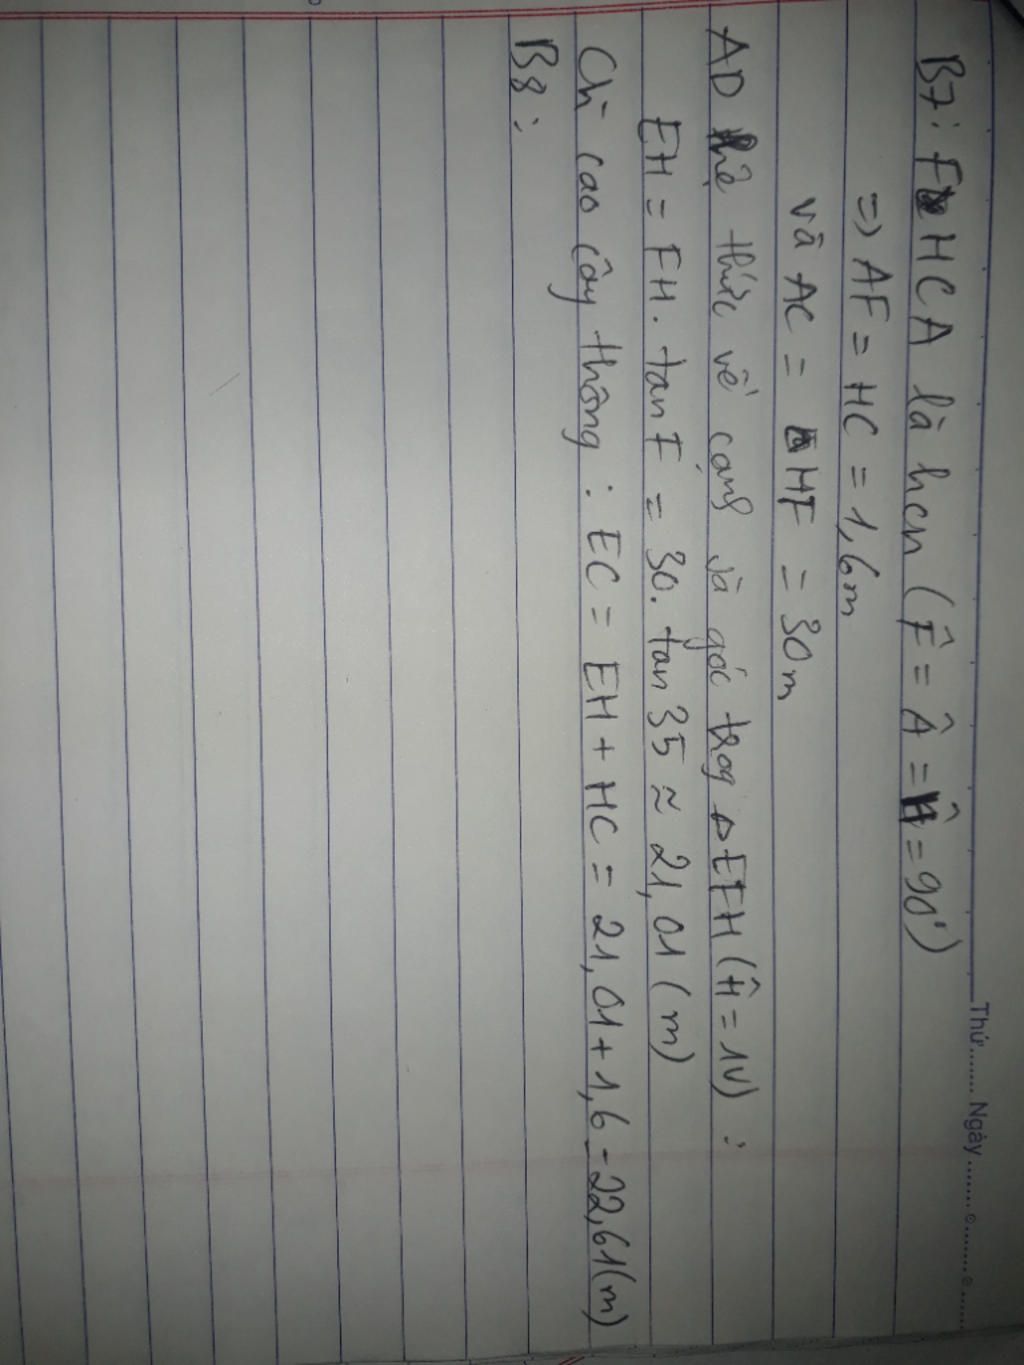 Thứ........ Ngày........
B7: FHCA là hcn (F̂ = Â = Ĥ = 90°)
=> AF = HC = 1,6m
và AC = HF = 30m
AD hệ thức về cạnh và góc trog △EFH (Ĥ = 1V) :
EH = FH. tan F = 30. tan 35 ≈ 21,01 (m)
Ch` cao cây thông : EC = EH + HC = 21,01 + 1,6 = 22,61 (m)
B8 :